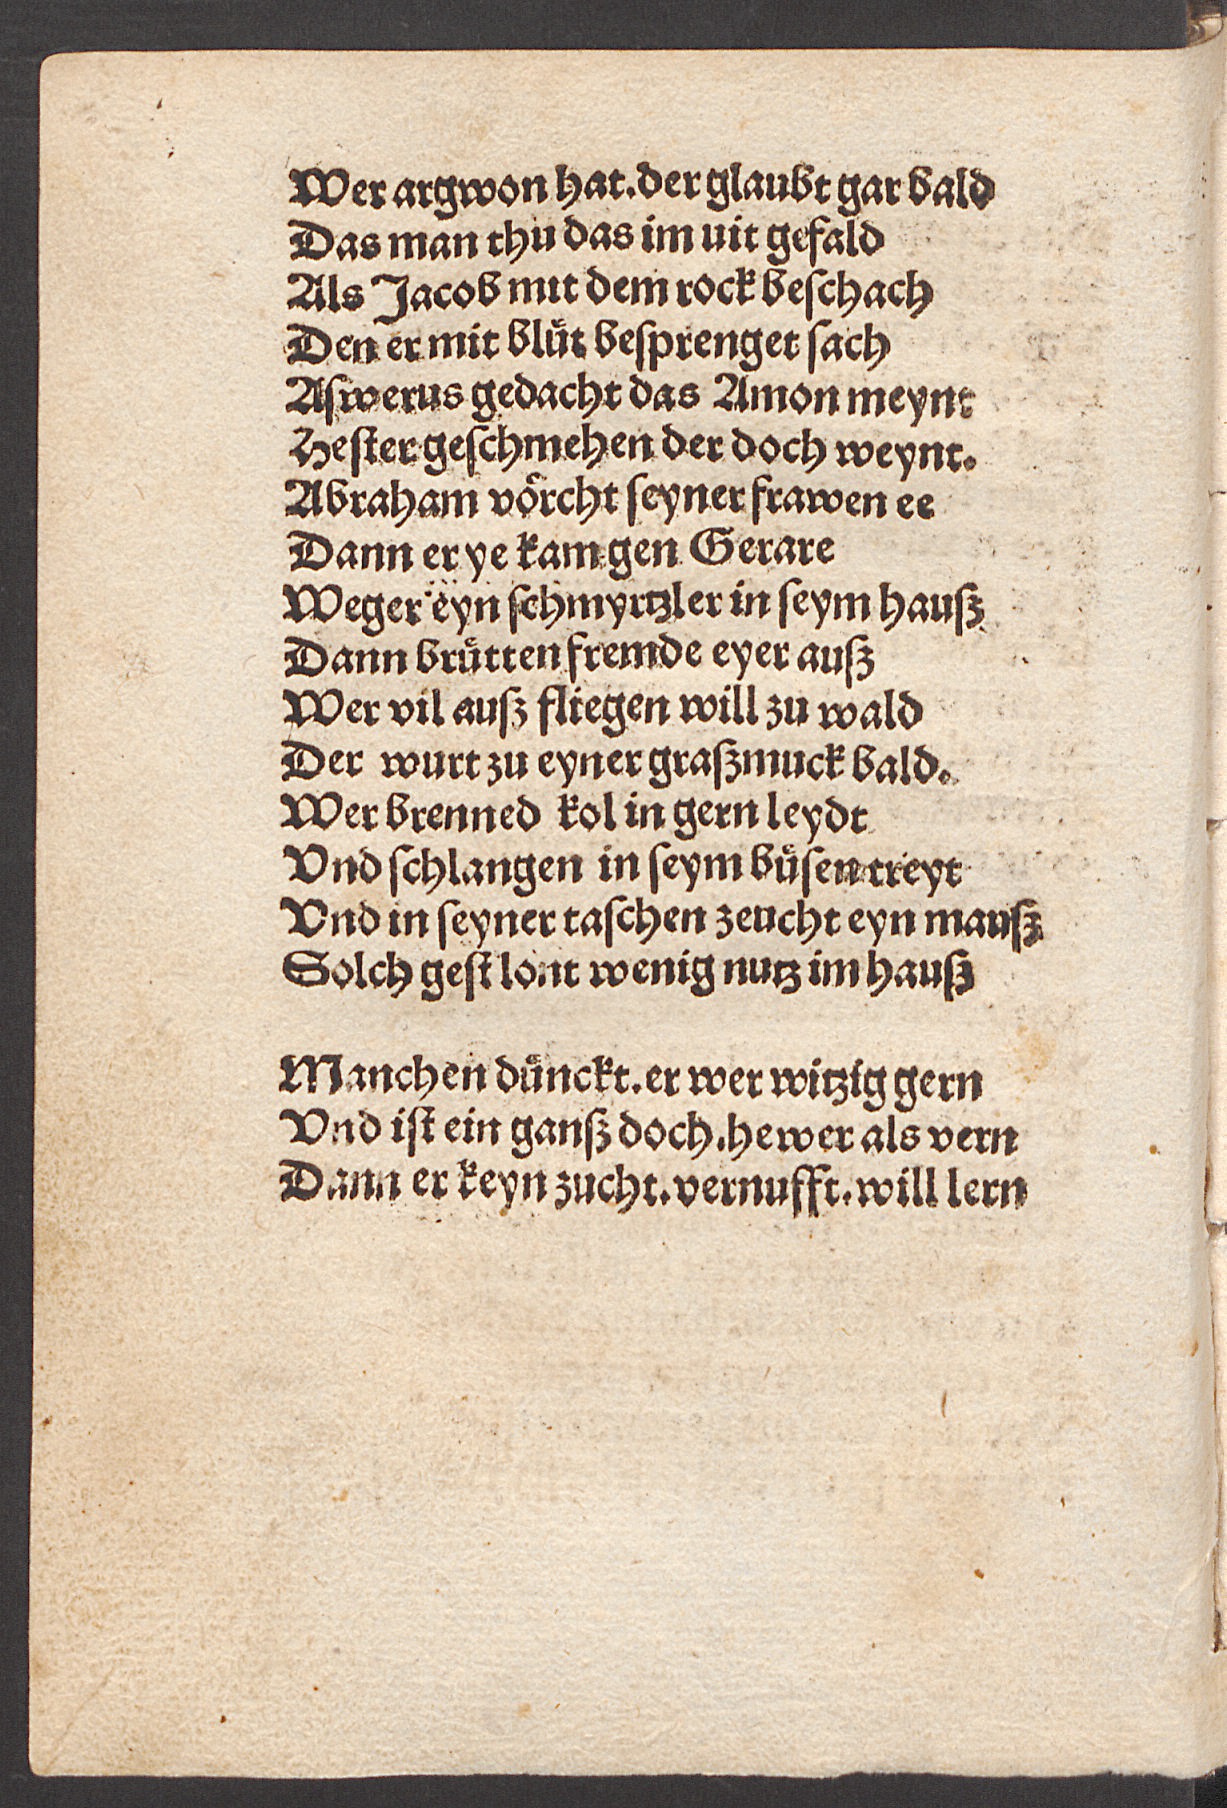 Wer argwon hat. der glaubt gar bald
Das man thu das im uit gefald
Als Jacob mit dem rock beschach
Den er mit blůt besprenget sach
Aswerus gedacht das Amon meynt
Hester geschmehen der doch weynt.
Abraham vörcht seyner frawen ee
Dann er ye kam gen Gerare
Weger eyn schmyrtzler in seym hauß
Dann brütten fremde eyer auß
Wer vil auß fliegen will zu wald
Der wurt zu eyner graßmuck bald.
Wer brenned kol in gern leydt
Vnd schlangen in seym bůsen treyt
Vnd in seyner taschen zeucht eyn mauß
Solch gest lont wenig nutz im hauß

Manchen dünckt. er wer witzig gern
Vnd ist ein ganß doch. hewer als vern
Dann er keyn zucht. vernufft. will lern